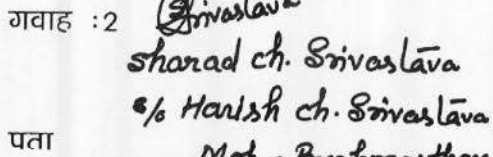 गवाह :2 Srivastava
Sharad ch. Srivastava
s/o Harish ch. Srivastava
पता